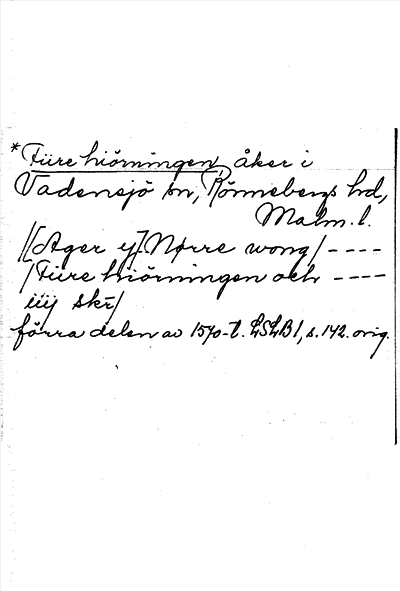 *Fiire hiörningen, åker i
Vadensjö sn, Rönnebergs hd,
Malm. l.
/[Ager y]. Nørre wong/ ----
/Fiire hiörningen och ----
iiij skr/
förra delen av 1570-t. LSLB 1, s. 142. orig.